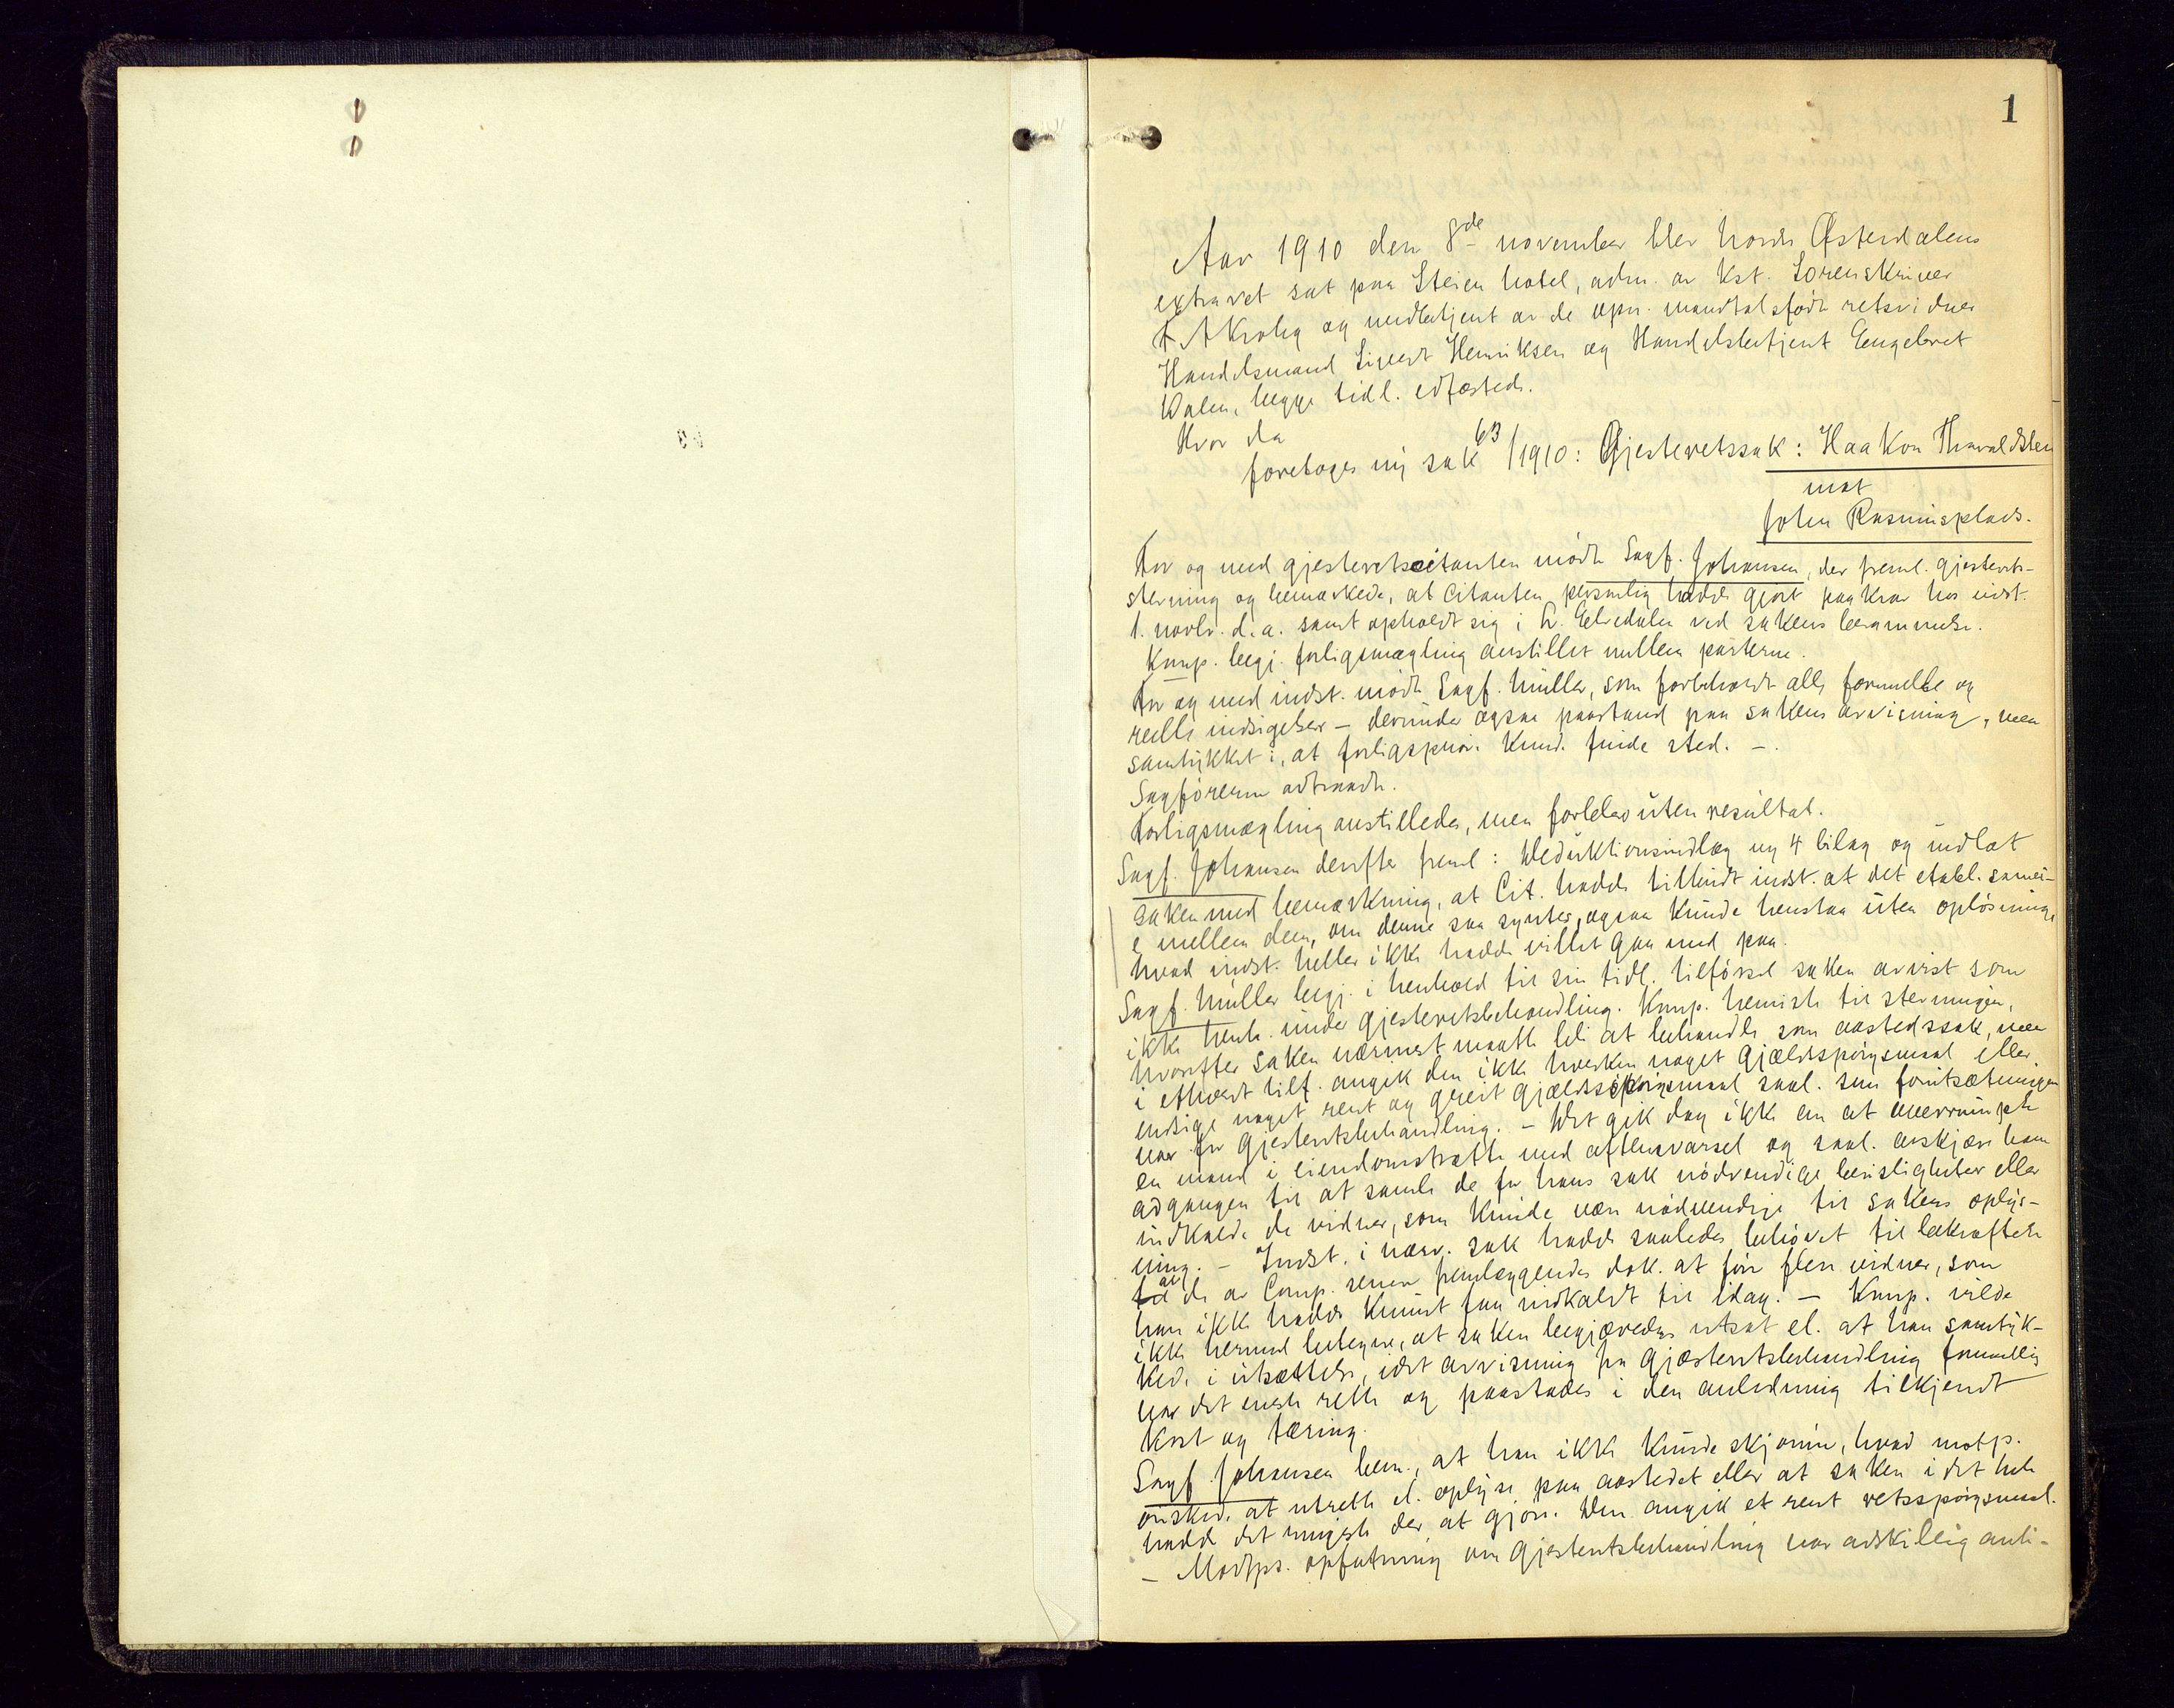 1
Aar 1910 den 8de november blev nordre Østerdalens
extraret sat paa Steien hotel, adm. av Kst. Sorenskriver
F. A. Krohg og medbetjent av de opn. mandtalsførte retsvidner
Handelsmand Sivert Henriksen og Handelsbetjent Engebret
Dalen, begge tidl. edfæstede.
Hvor da
foretoges ny sak 63/1910: Gjesteretssak: Haakon Thorvaldsen
mot
John Rasmusplads.
For og med gjesteretscitanten mødte Sagf. Johansen, der freml. gjesterets-
stevning og bemærkede, at Citanten personlig hadde gjort paakrav hos indst.
1. novbr. d.a. samt opholdt sig i L. Elvedalen ved sakens berammelse.
Komp. begj. forligsmægling anstillet mellem parterne.
For og med indst. mødte Sagf. Müller, som forbeholdt alle formelle og
reelle indsigelser – derunder ogsaa paastand paa sakens avvisning, men
samtykket i, at forligsprøve kunde finde sted. –
Sagførerne adtraadte.
Forligsmægling anstilledes, men forblev uten resultat.
Sagf. Johansen derefter freml: Deduktionsindlæg og 4 bilag og indlot
saken med bemærkning, at Cit. hadde tilbudt indst. at det etabl. samei-
e mellem dem, om denne saa syntes, ogsaa kunde henstaa uten opløsning,
hvad indst. heller ikke hadde villet gaa med paa.
Sagf. Müller begj. i henhold til sin tidl. tilførsel saken avvist som
ikke henh. under gjesteretsbehandling. Komp. henviste til stevningen,
hvorefter saken nærmest maatte bli at behandle som aastedssak, men
i ethvert tilf. angik den ikke hverken noget gjældsspørgsmaal eller
endsige noget rent og greit gjældsspørgsmaal saal. som forutsætningen
var for gjesteretsbehandling. – Det gik dog ikke an at overrumple
en mand i eiendomstrætte med aftensvarsel og saal. avskjære ham
adgangen til at samle de for hans sak nødvendige bevisligheter eller
indkalde de vidner, som kunde være nødvendige til sakens oplys-
ning. – Indst. i nærv. sak hadde saaledes behøvet til bekræftelse
av de av Comp. senere fremlæggendes dok. at føre flere vidner, som
han ikke hadde kunnet faa indkaldt til idag. – Komp. vilde
ikke hermed betegne, at saken begjæredes utsat el. at han samtyk-
kede i utsættelse, idet avvisning fra gjæsteretsbehandling formentlig
var det eneste rette og paastodes i den anledning tilkjendt
kost og tæring.
Sagf. Johansen bem., at han ikke kunde skjønne, hvad motp.
ønskede at utrette el. oplyse paa aastedet eller at saken i det hele
hadde det ringeste der at gjøre. Den angik et rent retsspørgsmaal.
– Modps. opfatning om gjesteretsbehandling var adskillig anti-